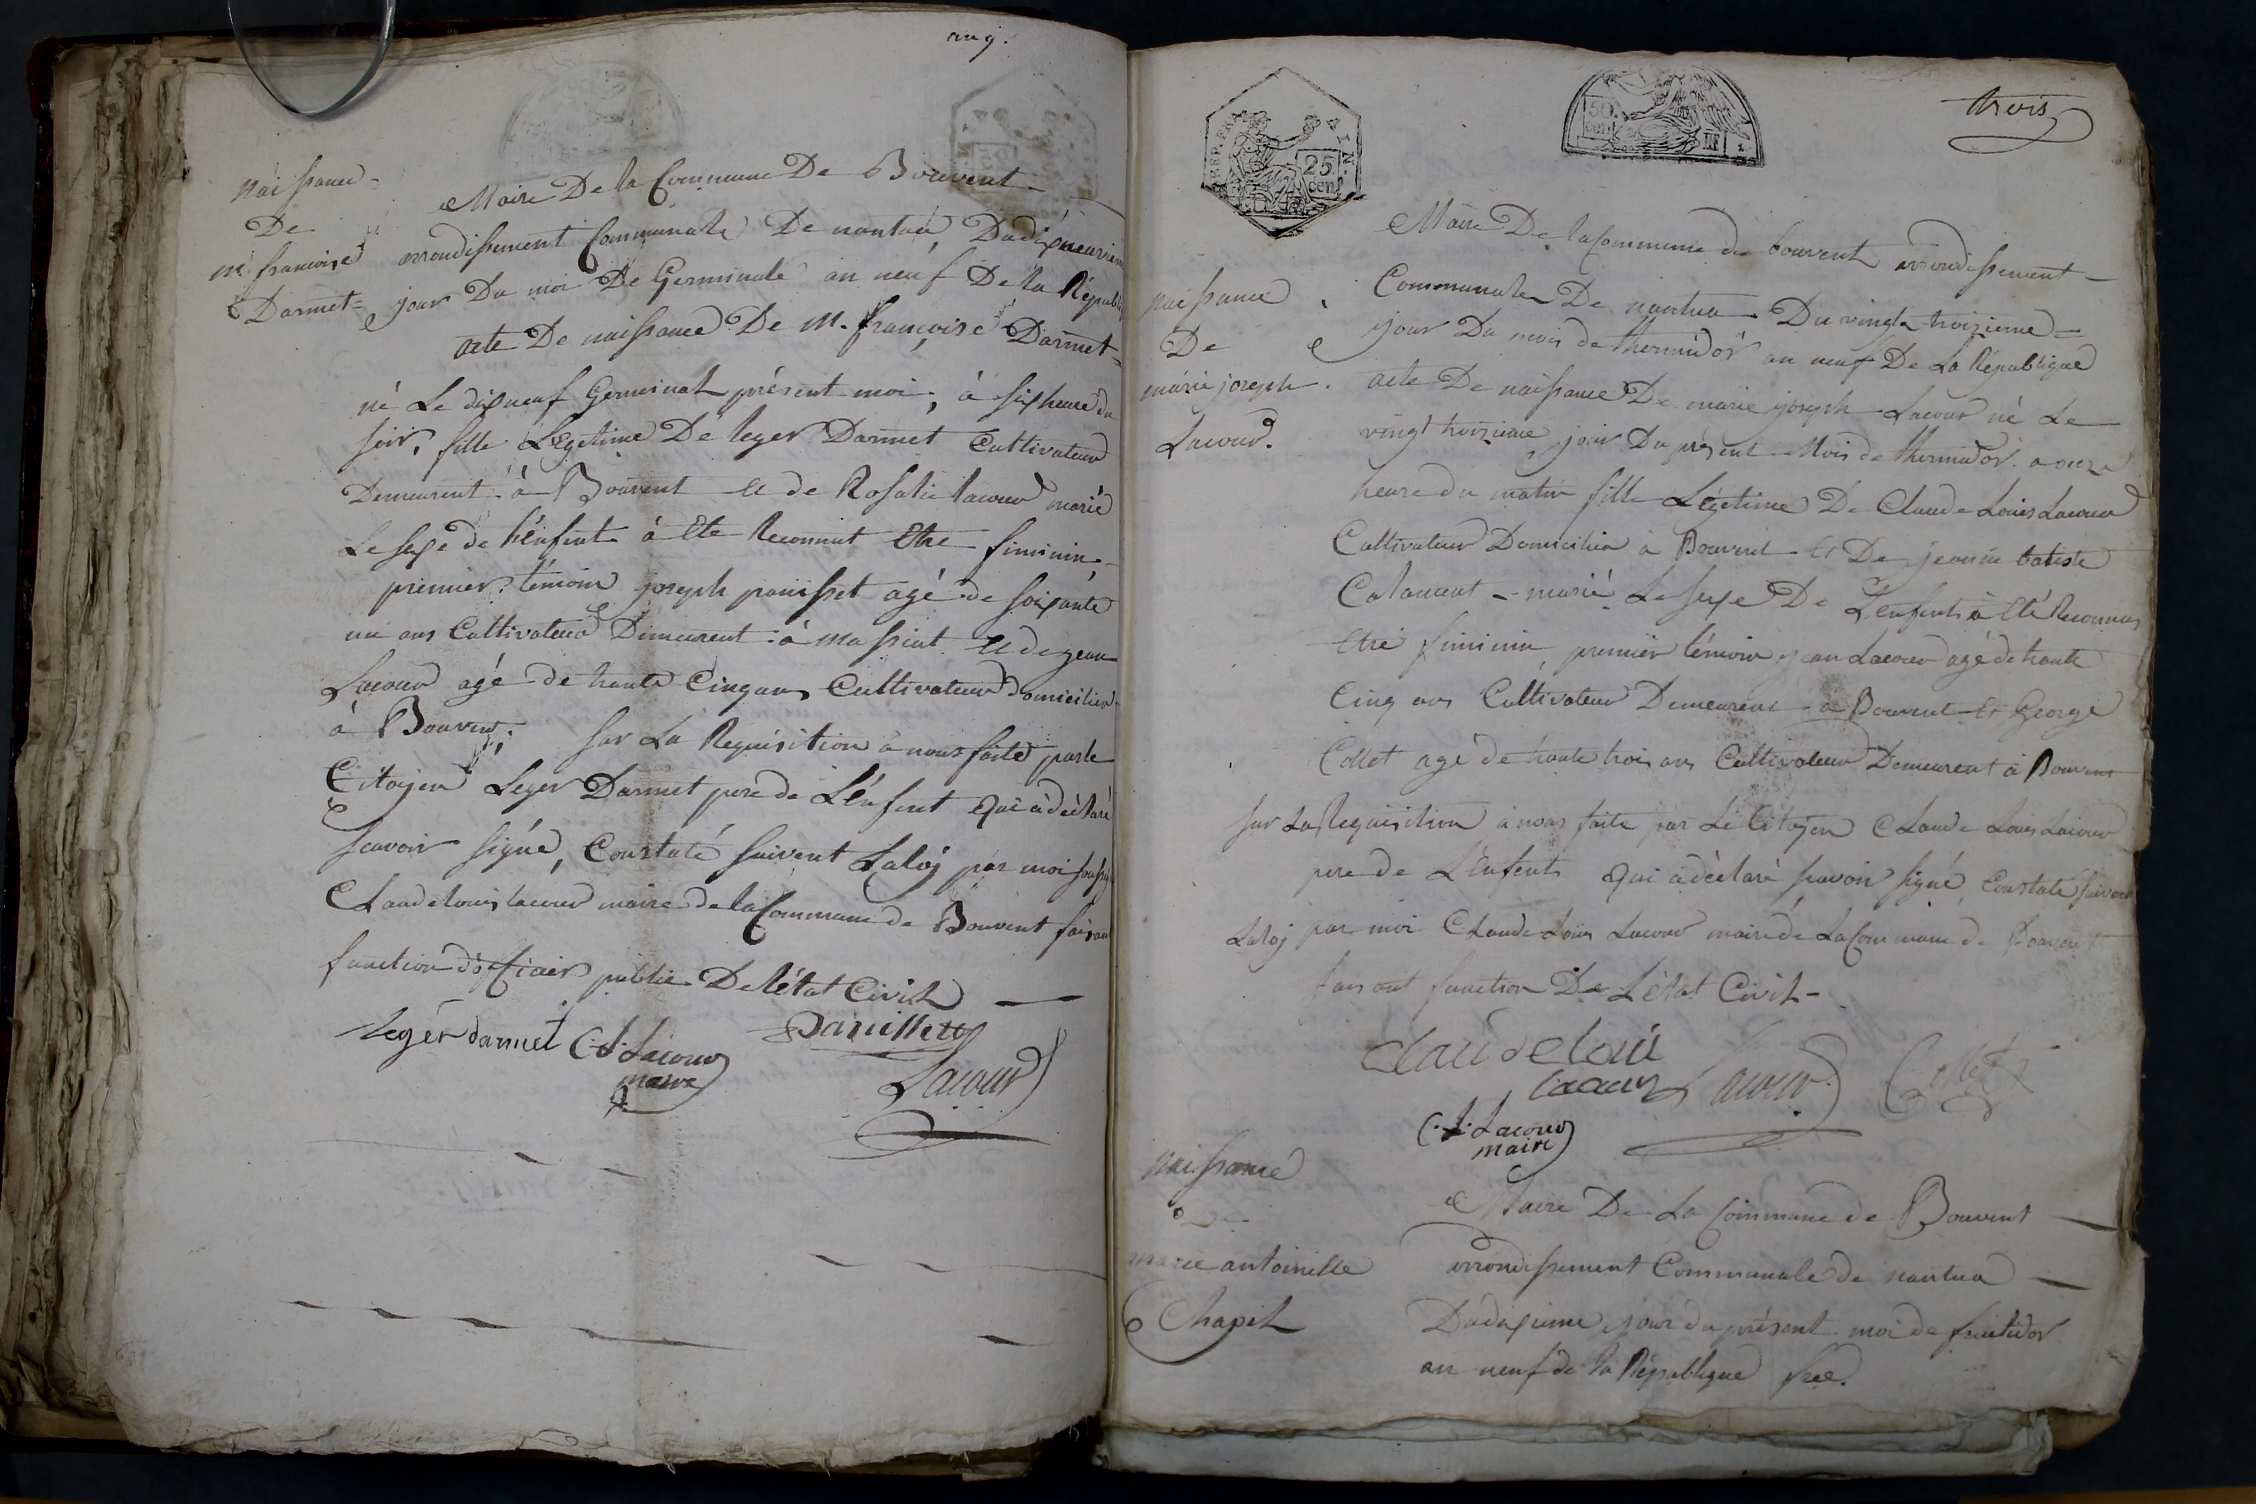 an 9.
naissance
De
m. francoise
Darmet
Maire De la Commune De Bouvent
arrondissement Communale De nantua, Du dixneuvieme
jour Du moi De Germinale an neuf De la Républi
acte De naissance De M. françoise Darmet
né Le dixneuf Germinal présent moi, à six heure du
soir, fille Légetime De leger Darmet Cultivateur
Demeurent à Bouvent et de Rosalie lacour marié
Le sexe de l'énfent à Eté Reconnut Etre feminin,
premier témoin joseph panisset agé de soixante
un ans Cultivateur Dimeurent à massiat et de jean
Lacour agé de trante Cinq ans Cultivateur domicilier
à Bouvent. sur La Requisition à nous faite par le
Citojen Léger Darmet pere de L'énfent qui à déclaré
scavoir signé, Constaté suivent La loj par moi soussi
Claude louis lacour maire de la Commune de Bouvent faisan
function d'officier public De l'état Civil
leger darmet C. L. Lacour
maire
Panissett
Lacour
REP. FRA.
25
cen
AIN.
50
cen
trois
naissance
De
marie joseph
Lacour.
Maire De la Commune de bouvent arrondissement
Communale De nantua Du vingt troizieme
jour Du mois de thermidor an neuf De La République
acte De naissance De marie joseph Lacour né Le
vingt troizieme jour Du présent Mois de thermidor a onze
heure du matin fille Légetime De Claude Louis Lacour
Cultivateur Domicilier à Bouvent et De jeanne batiste
marié Le sexe De L'enfent à Eté Reconnus
Etre feminin, premier témoin jean Lacour agé de trante
Cinq ans Cultivateur Demeurent à Bouvent et George
Collet agé de trante trois ans Cultivateur Demeurent à Bouvent
sur La Requisition a nous faite par Le Citojen Claude Louis Lacour
pere de L'énfent qui à déclaré savoir signé, Constaté suivent
La loj par moi Claude Louis Lacour maire de La Commune de Bouvent
faisant function De L'état Civil
Claude loui
lacour Lacour Collet
C. L. Lacour
maire
naissance
De
marie antoinette
Chapel
Maire De La Commune de Bouvent
arrondissement Communale de nantua
Du dixieme jour du présent moi de fructidor
an neuf de la République frce.